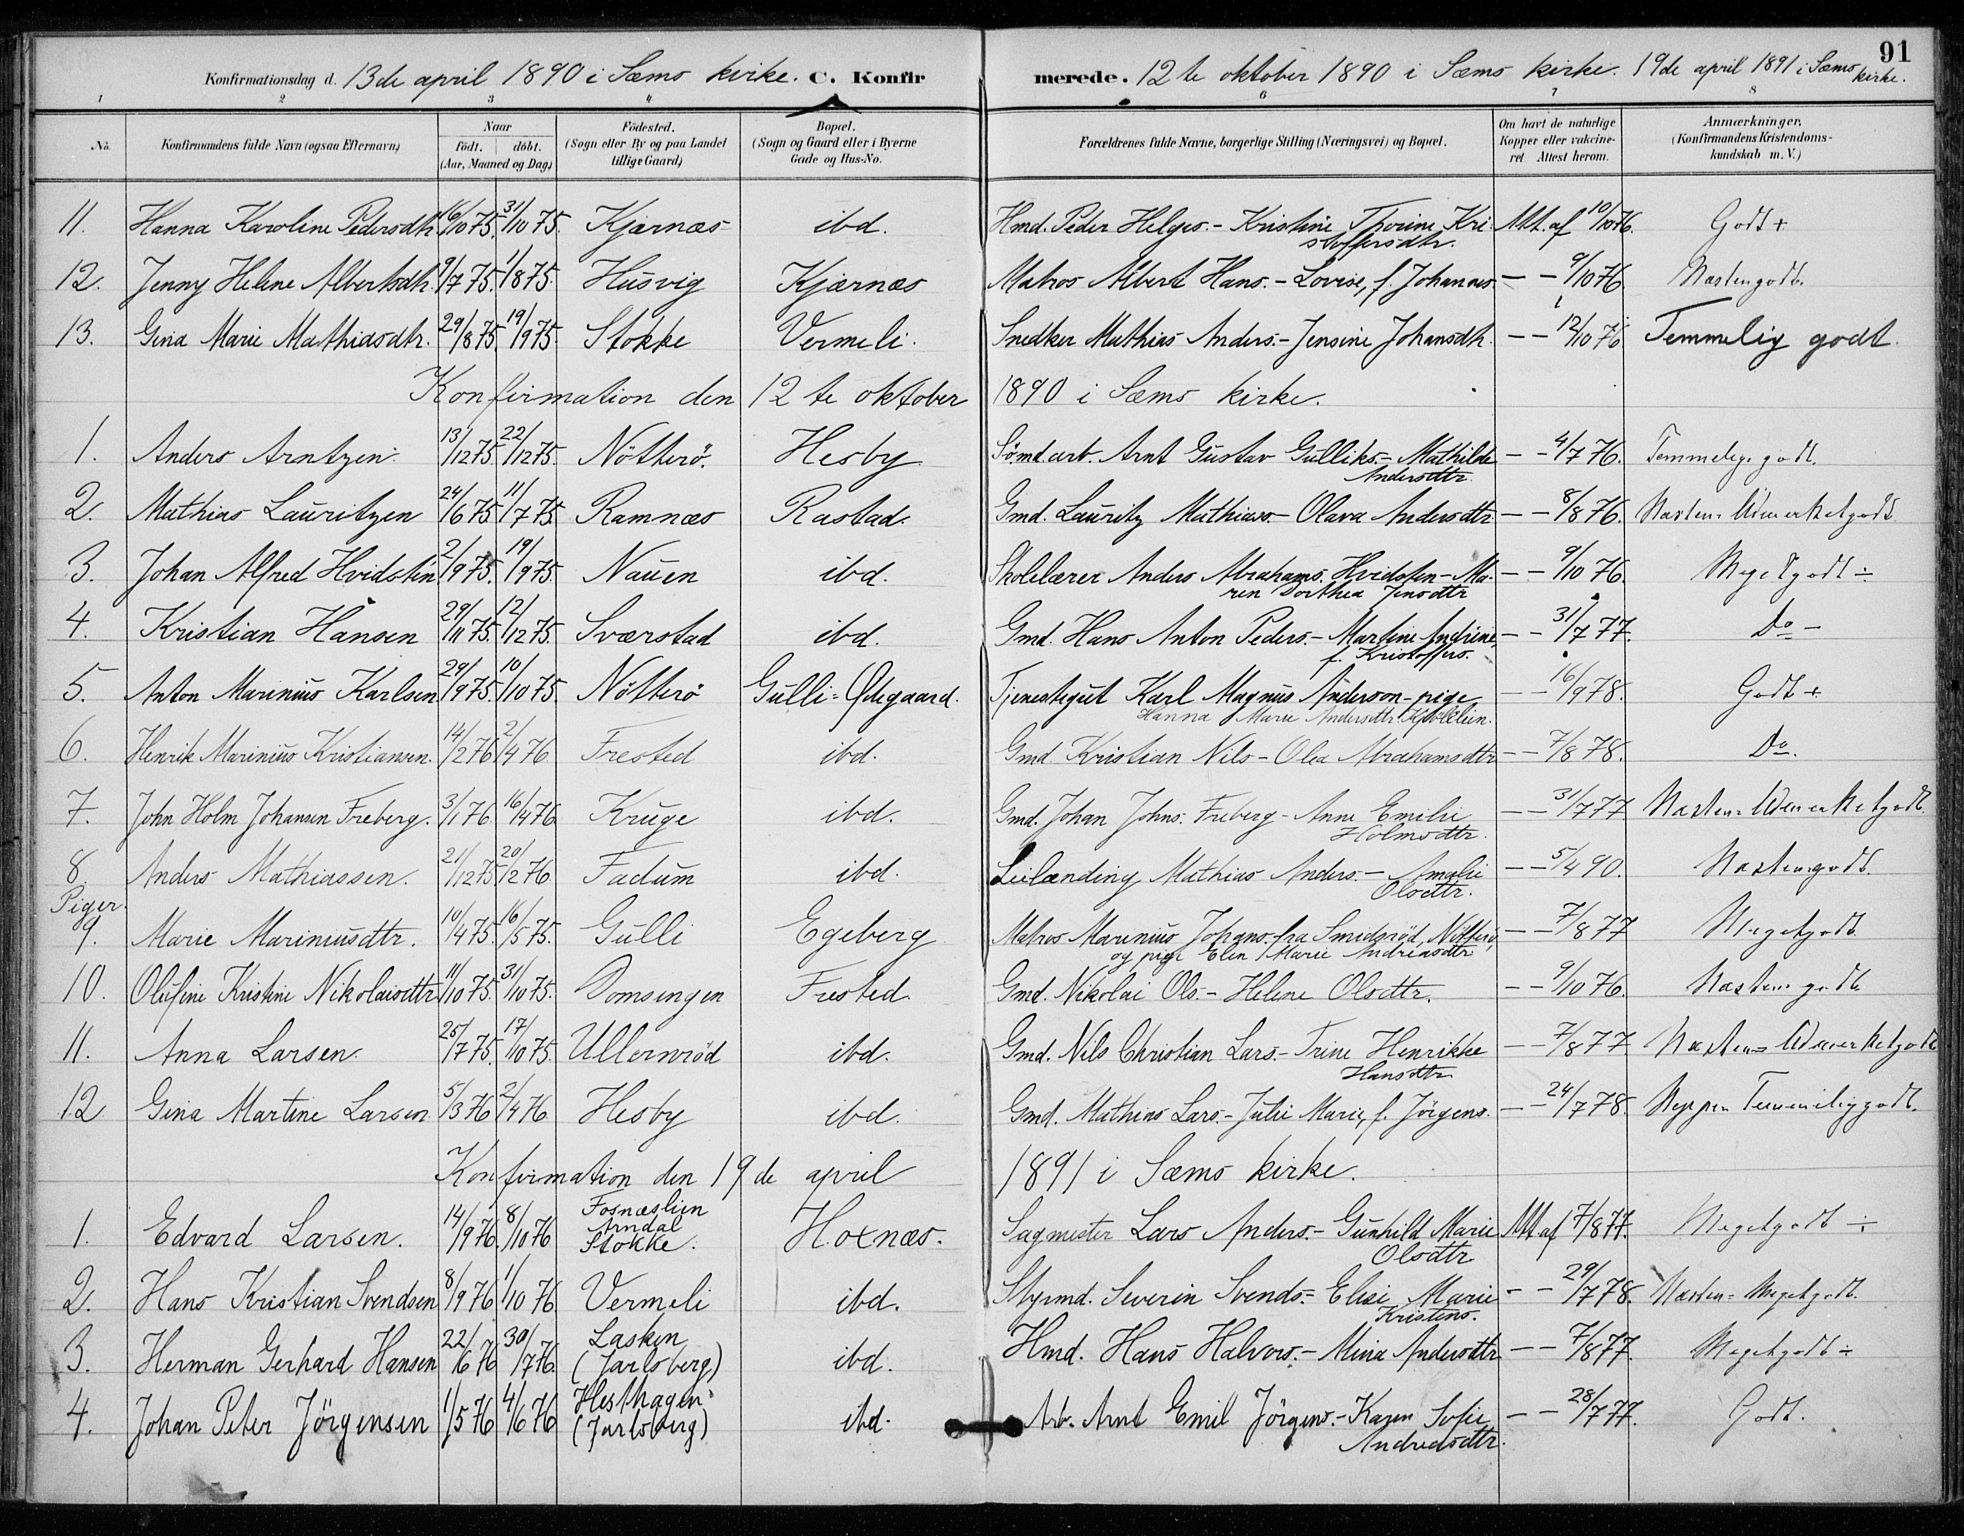 91
Konfirmationsdag d. 13de april 1890 i Sæms kirke. C. Konfirmerede. 12te oktober 1890 i Sæms kirke. 19de april 1891 i Sæms kirke.
1 2 3 4 6 7 8
No. Konfirmandens fulde Navn (ogsaa Efternavn) Naar født. døbt. (Aar, Maaned og Dag) Fødested. (Sogn eller By og paa Landet tillige Gaard) Bopæl. (Sogn og Gaard eller i Byerne Gade og Hus-No. Forældrenes fulde Navne, borgerlige Stilling (Næringsvei) og Bopæl. Om havt de naturlige Kopper eller vakcineret Attest herom. Anmærkninger. (Konfirmandens Kristendomskundskab m. V.)
11. Hanna Karoline Pedersdtr. 16/10 75. 31/10 75. Kjærnæs ibd. Hmd. Peder Helges.- Kristine Thorine Kristoffersdtr. Att. af 10/10 76. Godt +
12. Jenny Helene Albertsdtr. 9/7 75. 1/8 75. Husvig Kjærnæs Matros Albert Hans.- Lovise, f. Johannes. — — 9/10 76. Næsten godt.
13. Gina Marie Mathiasdtr. 29/8 75. 19/9 75. Stokke Vermeli. Snedker Mathias Anders.- Jensine Johansdtr. — — 12/10 76 Temmelig godt.
Konfirmation den 12te oktober 1890 i Sæms kirke.
1. Anders Arntzen. 13/12 75. 22/12 75. Nötterö. Hesby Sömd.arb. Arnt Gustav Gulliks.- Mathilde Andersdtr. — — 4/7 76. Temmelig godt.
2. Mathias Lauritzen 24/6 75. 11/7 75. Ramnæs Rastad. Gmd. Lauritz Mathias.- Olava Andersdtr — — 8/8 76. Næsten Udmerketgodt
3. Johan Alfred Hvidsten 2/9 75. 19/9 75. Nauen ibd. Skolelærer Anders Abrahams. Hvidsten - Maren Dorthea Jensdtr — — 9/10 76. Megetgodt ÷
4. Kristian Hansen 29/11 75. 12/12 75. Sværstad ibd. Gmd. Hans Anton Peders.- Martine Andrine, f. Kristoffers. — — 31/7 77. Do -
5. Anton Marinius Karlsen 29/9 75. 10/10 75. Nötterö Gulli-Ødegaard. Tjenestegut Karl Magnus Anderson - pige Hanna Marie Andersdtr — — 16/9 78. Godt +
6. Henrik Marinius Kristiansen. 14/2 76 2/4 76 Frested ibd. Gmd. Kristian Nils - Olea Abrahamsdtr — — 7/8 78. Do.
7. John Holm Johansen Freberg. 3/1 76. 16/4 76 Kruge ibd. Gmd. Johan Johns. Freberg - Anne Emilie Holmsdtr. — — 31/7 77 Næsten Udmerketgodt.
8. Anders Mathiassen. 21/12 75 20/2 76 Fadum ibd. Leilænding Mathias Anders.- Amalie Olsdtr. — — 5/4 90. Næsten godt.
Piger.
9. Marie Mariniusdtr. 10/4 75. 16/5 75. Gulli Egeberg Matros Marinius Johans. fra Smidsröd, Nötterö, og pige Elen Marie Andreasdtr — — 7/8 77 Megetgodt.
10. Olufine Kristine Nikolaisdtr. 11/10 75. 31/10 75. Domsengen Frested. Gmd. Nikolai Ols.- Helene Olsdtr. — — 9/10 76. Næsten godt.
11. Anna Larsen. 25/7 75. 17/10 75. Ullernröd ibd. Gmd. Nils Christian Lars.- Trine Henrikke Hansdtr. — — 7/8 77 Næsten Udmerketgodt
12 Gina Martine Larsen 5/3 76 2/4 76 Hesby ibd. Gmd. Mathias Lars.- Julie Marie, f. Jörgens. — — 24/7 78. Neppe Temmeliggodt.
Konfirmation den 19de april 1891 i Sæms kirke.
1. Edvard Larsen. 14/9 76. 8/10 76 Fosnæslien Arndal Stokke. Hoxnæs. Sagmester Lars Anders.- Gunhild Marie Olsdtr Att af 7/8 77. Megetgodt ÷
2. Hans Kristian Svendsen 8/9 76 1/10 76 Vermeli ibd. Styrmd. Severin Svends.- Elise Marie Kristens. — — 29/7 78. Næsten Megetgodt.
3. Herman Gerhard Hansen 22/6 76 30/7 76. Lasken (Jarlsberg) ibd. Hmd. Hans Halvors.- Mina Andersdtr — — 7/8 77. Megetgodt ÷
4. Johan Peter Jörgensen 1/5 76 4/6 76 Hesthagen (Jarlsberg) ibd. Arb. Arnt Emil Jörgens.- Karen Sofie Andredsdtr. — — 28/7 77. Godt.